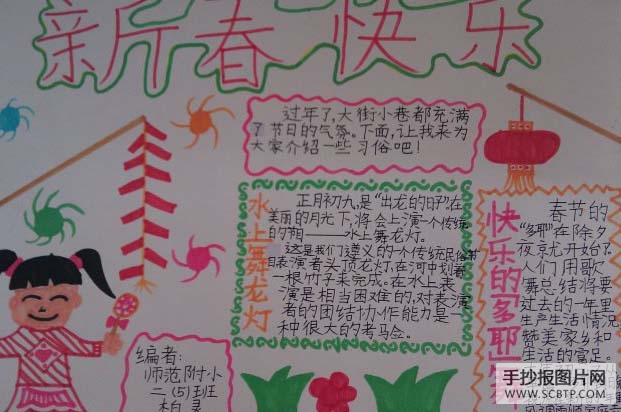 新春快乐
过年了,大街小巷都充满
了节日的气氛。下面,让我来为
大家介绍一些习俗吧!
水上舞龙灯
正月初九,是“出龙的日子”,在
美丽的月光下,将会上演一个传统
的节目——水上舞龙灯。
这是我们遵义的一个传统民俗节
目,表演者头顶龙灯,在河中划着
一根竹子来完成。在水上表
演是相当困难的,对表演
者的团结协作能力是一
种很大的考马佥。
快乐的「多耶」
春节的
“多耶”在除夕
夜就开始了。
人们用歌
舞总结将要
过去的一年里
生产生活情况,
赞美家乡和
生活的富足。
编者:
师范附小
二(5)班
手抄报图片网
WWW.SCBTP.COM